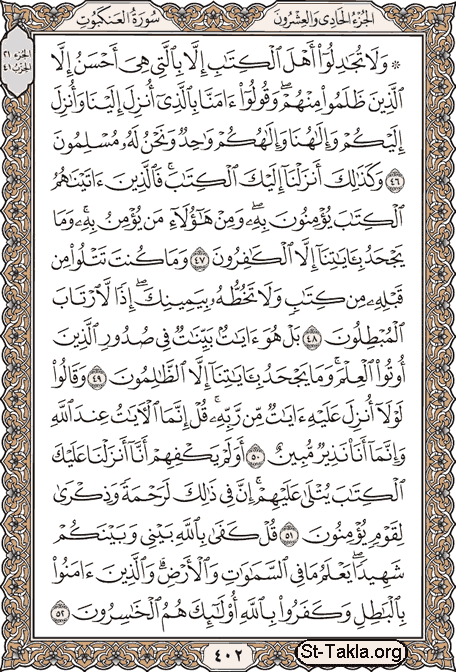 الجزء الحادى والعشرون
سورة العنكبوت
الجزء ٢١
الحزب ٤١
۞ وَلَا تُجَٰدِلُوٓا۟ أَهْلَ ٱلْكِتَٰبِ إِلَّا بِٱلَّتِى هِىَ أَحْسَنُ إِلَّا
ٱلَّذِينَ ظَلَمُوا۟ مِنْهُمْ ۖ وَقُولُوٓا۟ ءَامَنَّا بِٱلَّذِىٓ أُنزِلَ إِلَيْنَا وَأُنزِلَ
إِلَيْكُمْ وَإِلَٰهُنَا وَإِلَٰهُكُمْ وَٰحِدٌ وَنَحْنُ لَهُۥ مُسْلِمُونَ
٤٦ وَكَذَٰلِكَ أَنزَلْنَآ إِلَيْكَ ٱلْكِتَٰبَ ۚ فَٱلَّذِينَ ءَاتَيْنَٰهُمُ
ٱلْكِتَٰبَ يُؤْمِنُونَ بِهِۦ ۖ وَمِنْ هَٰٓؤُلَآءِ مَن يُؤْمِنُ بِهِۦ ۚ وَمَا
يَجْحَدُ بِـَٔايَٰتِنَآ إِلَّا ٱلْكَٰفِرُونَ ٤٧ وَمَا كُنتَ تَتْلُوا۟ مِن
قَبْلِهِۦ مِن كِتَٰبٍ وَلَا تَخُطُّهُۥ بِيَمِينِكَ ۖ إِذًا لَّٱرْتَابَ
ٱلْمُبْطِلُونَ ٤٨ بَلْ هُوَ ءَايَٰتٌۢ بَيِّنَٰتٌ فِى صُدُورِ ٱلَّذِينَ
أُوتُوا۟ ٱلْعِلْمَ ۚ وَمَا يَجْحَدُ بِـَٔايَٰتِنَآ إِلَّا ٱلظَّٰلِمُونَ ٤٩ وَقَالُوا۟
لَوْلَآ أُنزِلَ عَلَيْهِ ءَايَٰتٌ مِّن رَّبِّهِۦ ۖ قُلْ إِنَّمَا ٱلْـَٔايَٰتُ عِندَ ٱللَّهِ
وَإِنَّمَآ أَنَا۠ نَذِيرٌ مُّبِينٌ ٥٠ أَوَلَمْ يَكْفِهِمْ أَنَّآ أَنزَلْنَا عَلَيْكَ
ٱلْكِتَٰبَ يُتْلَىٰ عَلَيْهِمْ ۚ إِنَّ فِى ذَٰلِكَ لَرَحْمَةً وَذِكْرَىٰ
لِقَوْمٍ يُؤْمِنُونَ ٥١ قُلْ كَفَىٰ بِٱللَّهِ بَيْنِى وَبَيْنَكُمْ
شَهِيدًا ۖ يَعْلَمُ مَا فِى ٱلسَّمَٰوَٰتِ وَٱلْأَرْضِ ۗ وَٱلَّذِينَ ءَامَنُوا۟
بِٱلْبَٰطِلِ وَكَفَرُوا۟ بِٱللَّهِ أُو۟لَٰٓئِكَ هُمُ ٱلْخَٰسِرُونَ ٥٢
٤٠٢
St-Takla.org